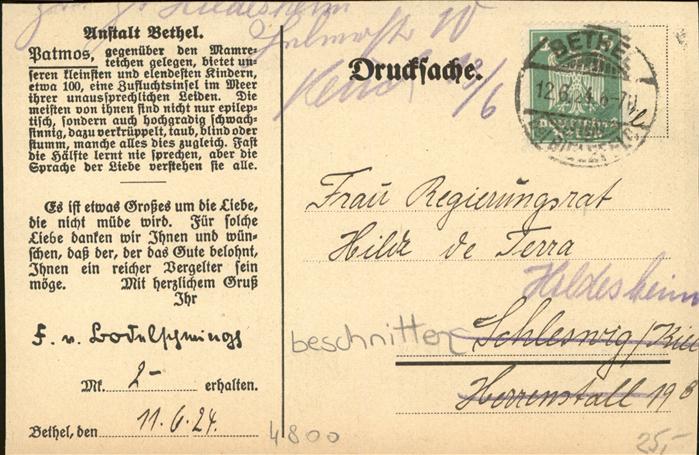 Hildesheim
Anstalt Bethel.
Patmos, gegenüber den Mamre-
teichen gelegen, bietet un-
seren kleinsten und elendesten Kindern,
etwa 100, eine Zufluchtsinsel im Meer
ihrer unaussprechlichen Leiden. Die
meisten von ihnen sind nicht nur epilep-
tisch, sondern auch hochgradig schwach-
sinnig, dazu verkrüppelt, taub, blind oder
stumm, manche alles dies zugleich. Fast
die Hälfte lernt nie sprechen, aber die
Sprache der Liebe verstehen sie alle.
Es ist etwas Großes um die Liebe,
die nicht müde wird. Für solche
Liebe danken wir Ihnen und wün-
schen, daß der, der das Gute belohnt,
Ihnen ein reicher Vergelter sein
möge. Mit herzlichem Gruß
Ihr
F. v. Bodelschwingh
Mk. 2- erhalten.
Bethel, den 11.6.24.
Drucksache.
BETHEL
12.6.
Frau Regierungsrat
Hilde de Terra
Hildesheim
beschnitten
Schleswig/
Herrenstall 19
4800
25,-